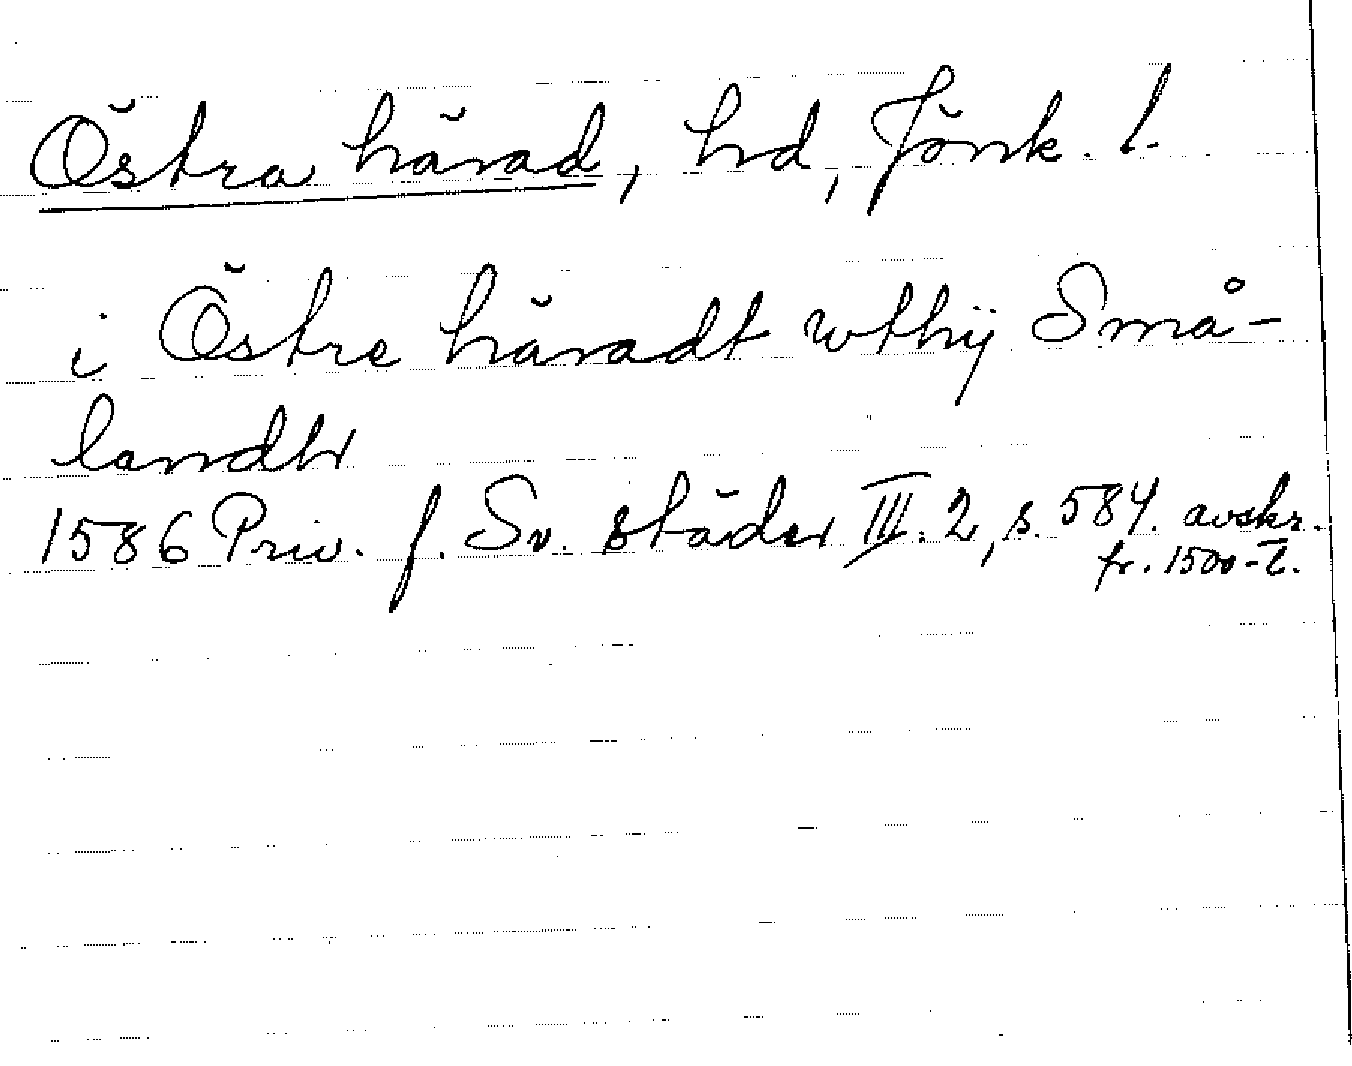 Östra härad, hd, Jönk. l.
i Östre häradt wthÿ Små-
landh
1586 Priv. f. Sv. städer III. 2, s. 584. avskr.
fr. 1500-t.